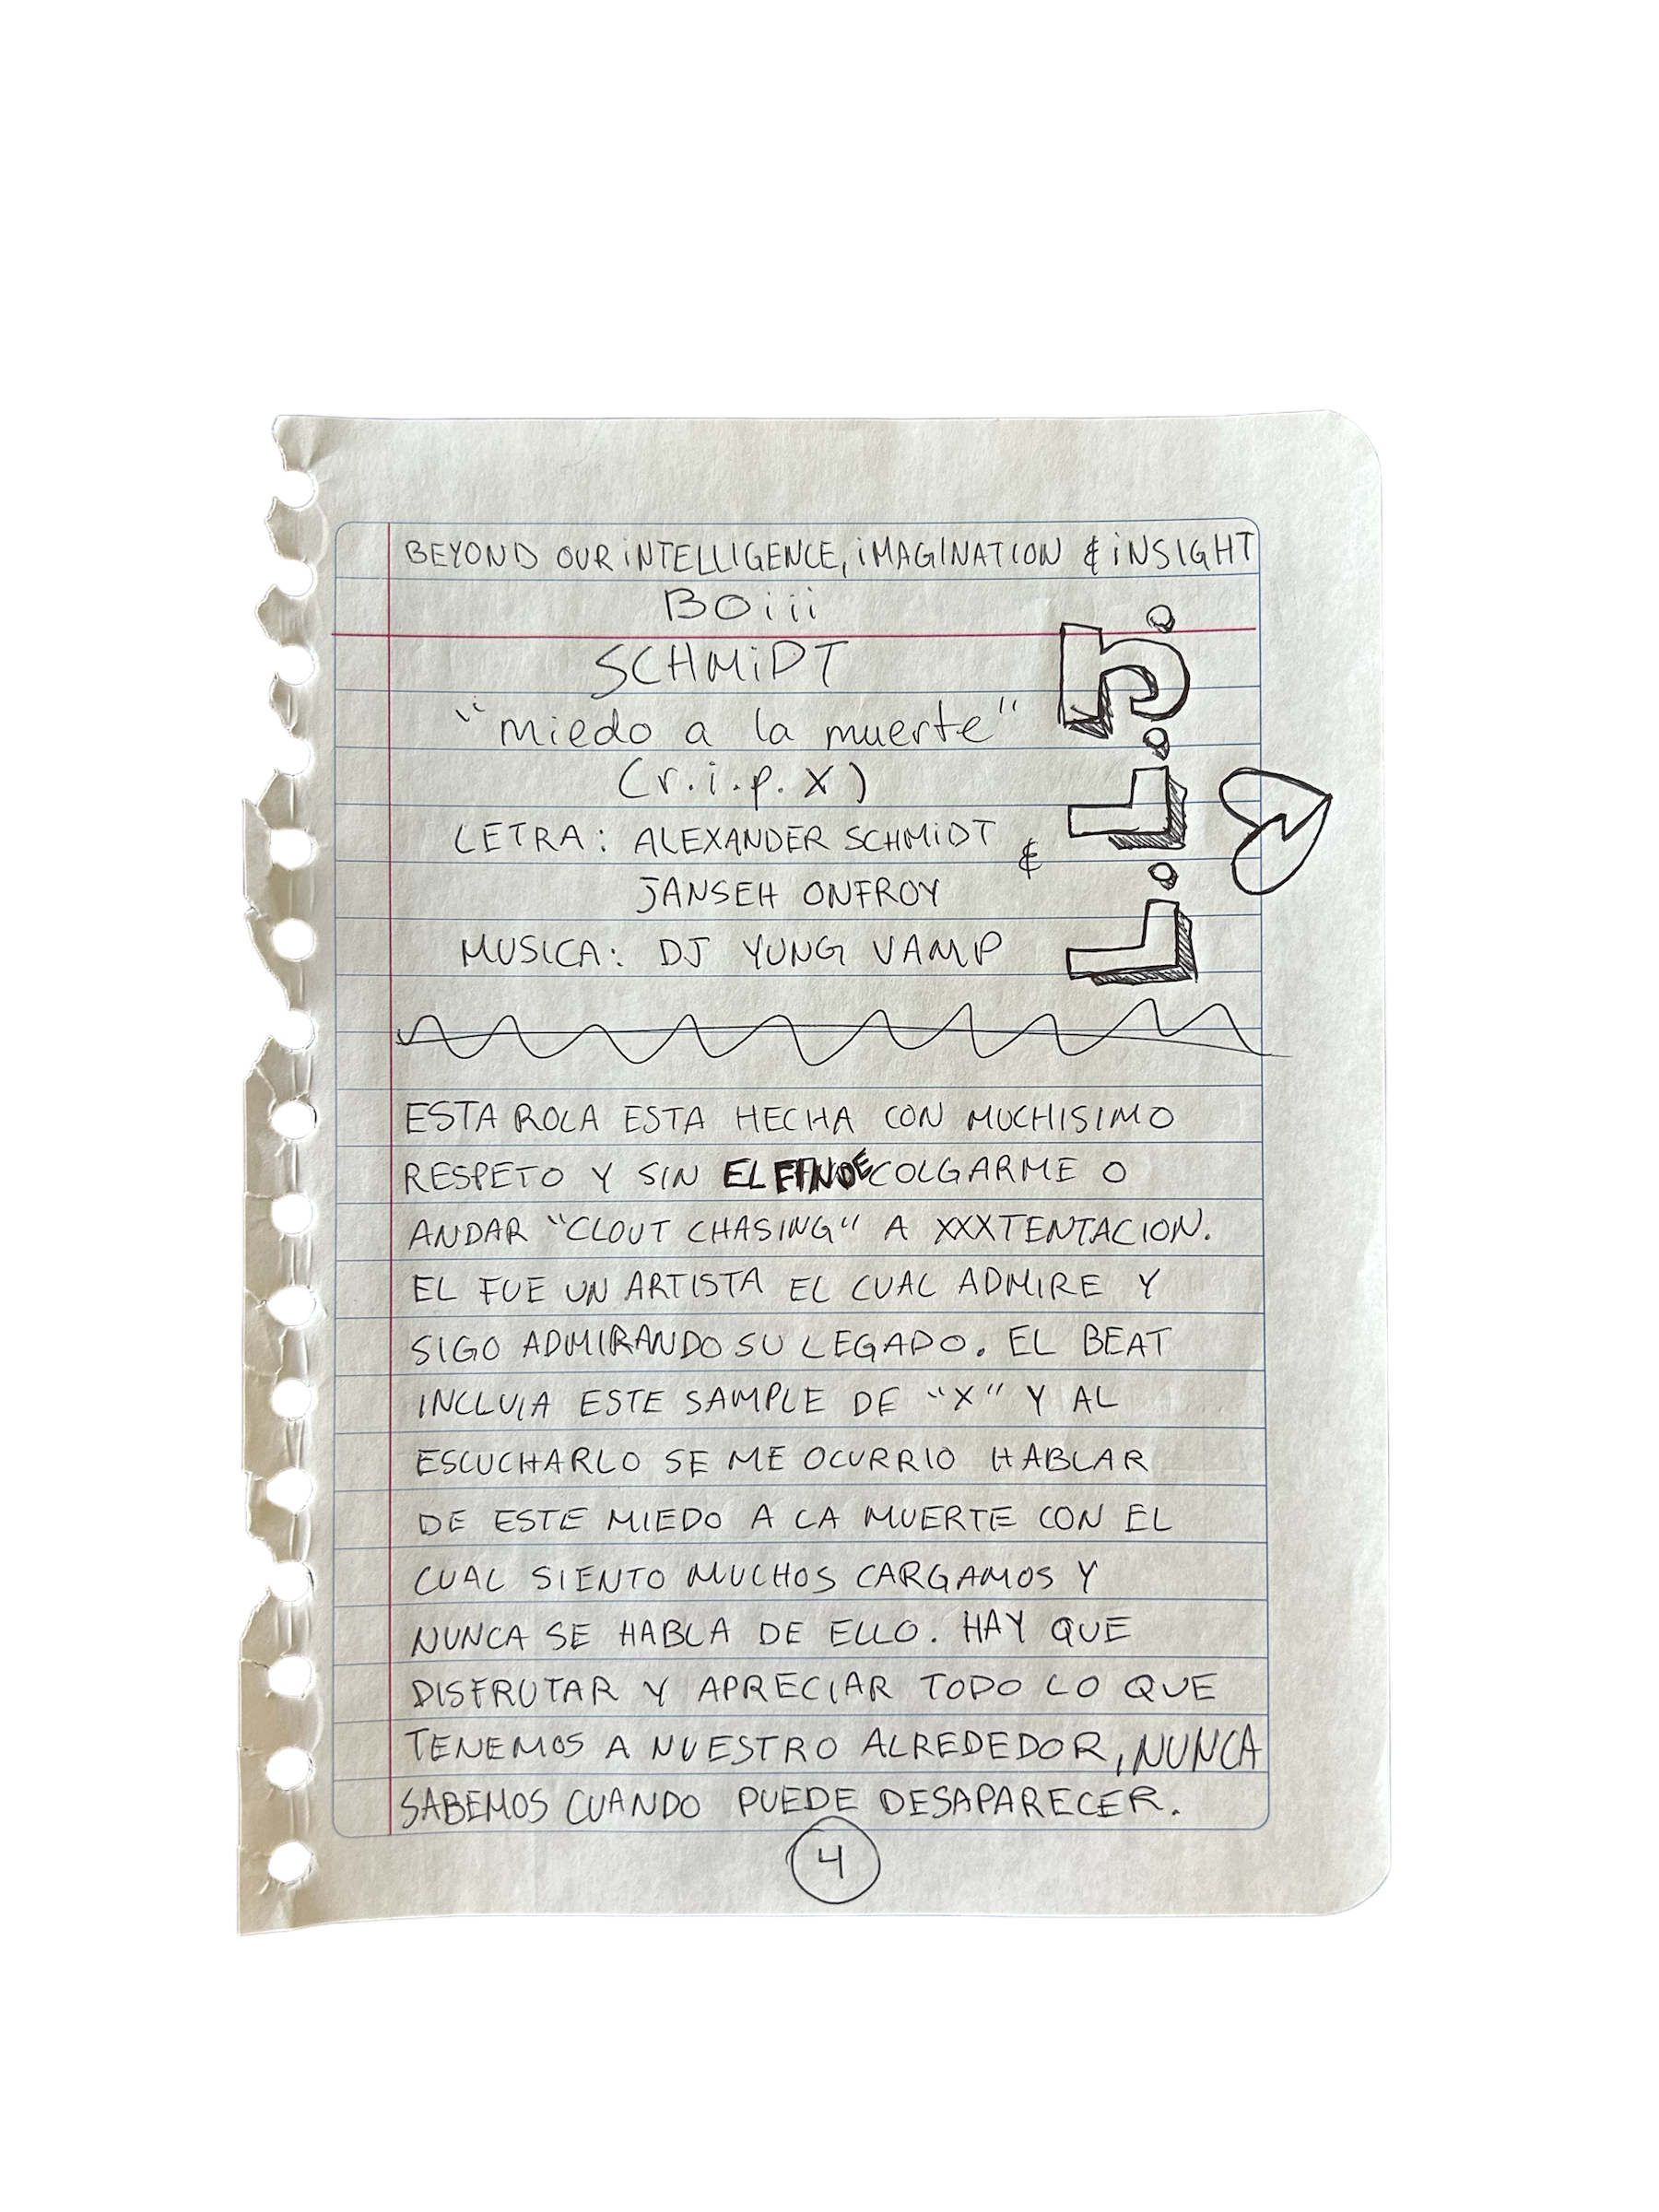 BEYOND OUR iNTELLIGENCE, iMAGINATION & iNSIGHT
BOiii
SCHMiDT
"miedo a la muerte"
(r.i.p. X)
LETRA: ALEXANDER SCHMiDT &
JANSEH ONFROY
MUSICA: DJ YUNG VAMP
L.L.J.
ESTA ROLA ESTA HECHA CON MUCHISIMO
RESPETO Y SIN EL FIN DE COLGARME O
ANDAR "CLOUT CHASING" A XXXTENTACION.
EL FUE UN ARTISTA EL CUAL ADMIRE Y
SIGO ADMIRANDO SU LEGADO. EL BEAT
INCLUIA ESTE SAMPLE DE "X" Y AL
ESCUCHARLO SE ME OCURRIO HABLAR
DE ESTE MIEDO A LA MUERTE CON EL
CUAL SIENTO MUCHOS CARGAMOS Y
NUNCA SE HABLA DE ELLO. HAY QUE
DISFRUTAR Y APRECIAR TODO LO QUE
TENEMOS A NUESTRO ALREDEDOR, NUNCA
SABEMOS CUANDO PUEDE DESAPARECER.
4